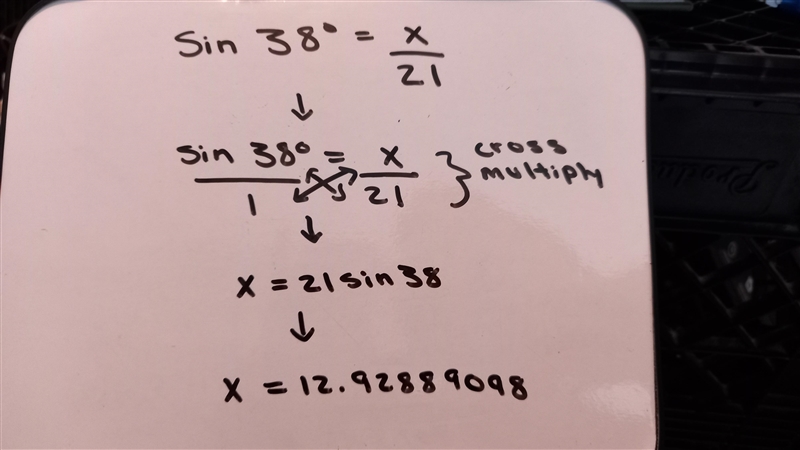 Sin 38° = x/21
↓
sin 38°/1 = x/21 } cross multiply
↓
x = 21 sin 38
↓
x = 12.92889098
Produ